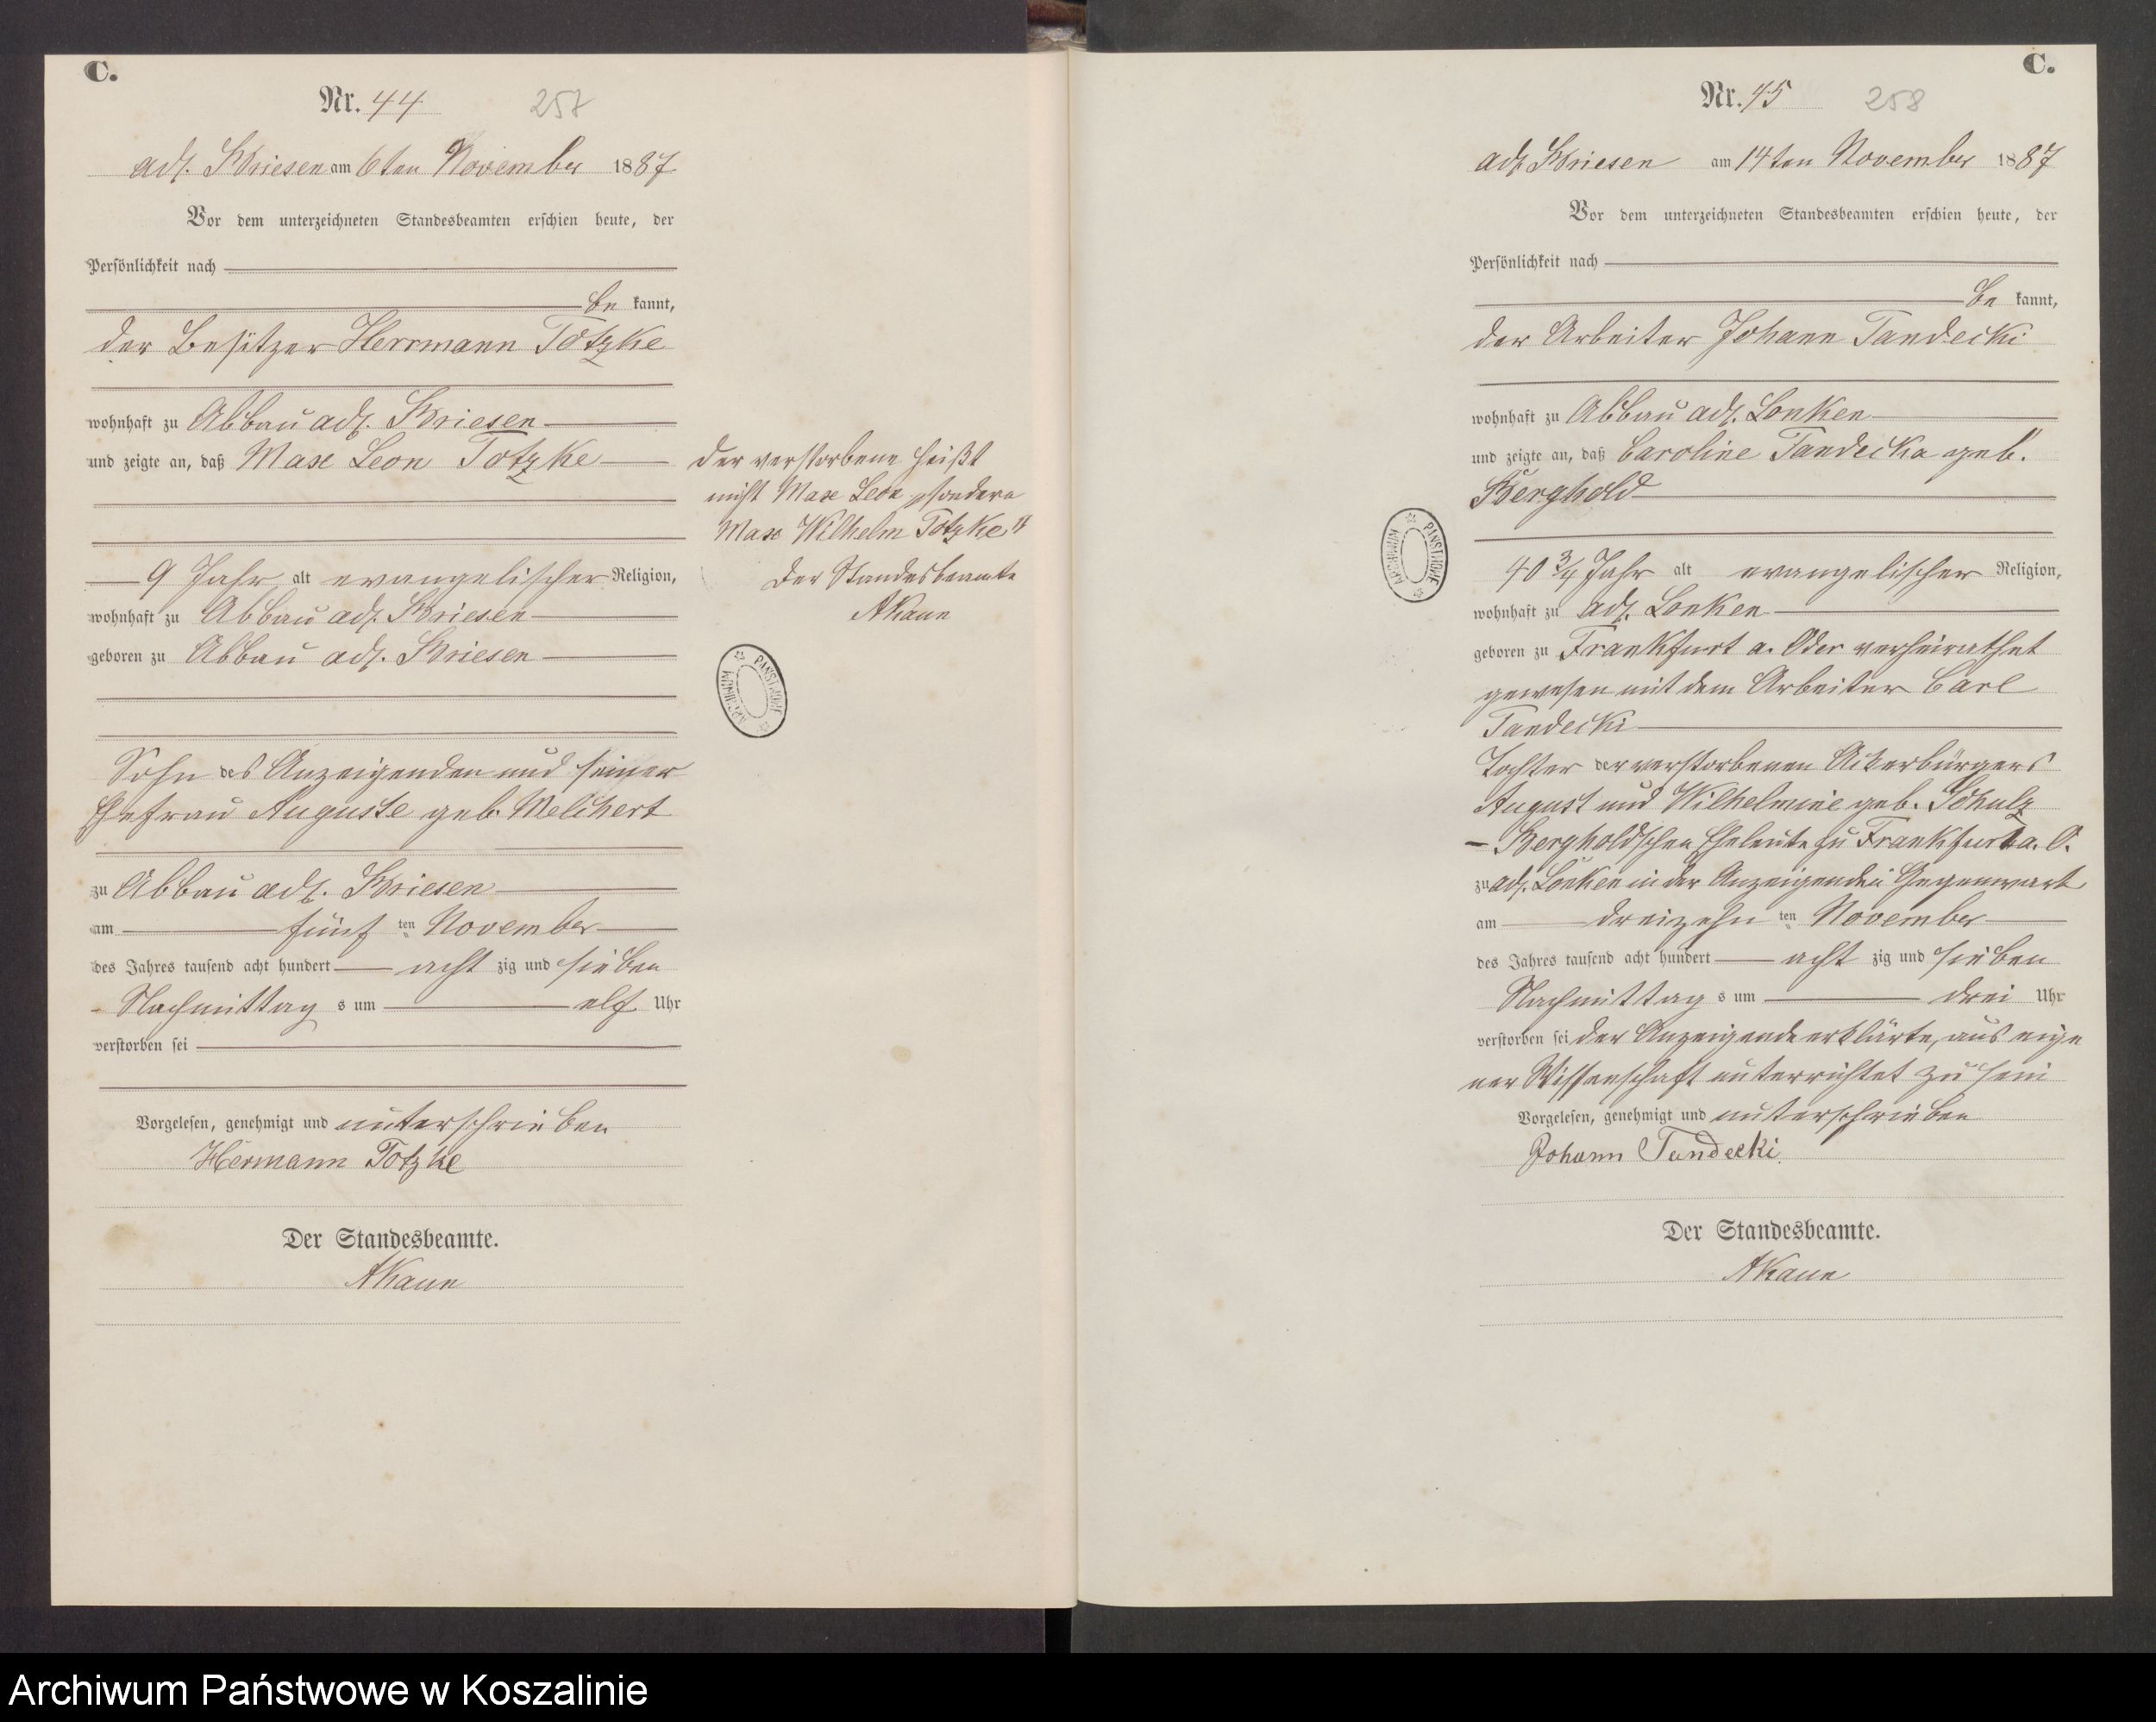 C.
Nr. 44 257
adl. Briesen am 6ten November 1887
Vor dem unterzeichneten Standesbeamten erschien heute, der
Persönlichkeit nach
be kannt,
der Besitzer Herrmann Totzke
wohnhaft zu Abbau adl. Briesen
und zeigte an, daß Max Leon Totzke
9 Jahr alt evangelischer Religion,
wohnhaft zu Abbau adl. Briesen
geboren zu Abbau adl. Briesen
Sohn des Anzeigenden und seiner
Ehefrau Auguste geb. Melchert
zu Abbau adl. Briesen
am fünf ten November
des Jahres tausend acht hundert acht zig und sieben
Nachmittag s um elf Uhr
verstorben sei
Vorgelesen, genehmigt und unterschrieben
Hermann Totzke
Der Standesbeamte.
AKaun
der verstorbene heißt
nicht Max Leon sondern
Max Wilhelm Totzke"
Der Standesbeamte
AKaun
ARCHIWUM PAŃSTWOWE
C.
Nr. 45 258
adl. Briesen am 14ten November 1887
Vor dem unterzeichneten Standesbeamten erschien heute, der
Persönlichkeit nach
be kannt,
der Arbeiter Johann Tandecki
wohnhaft zu Abbau adl. Lonken
und zeigte an, daß Caroline Tandecka geb.
Berghold
40 3/4 Jahr alt evangelischer Religion,
wohnhaft zu adl. Lonken
geboren zu Frankfurt a. Oder verheirathet
gewesen mit dem Arbeiter Carl
Tandecki
Tochter der verstorbenen Ackerbürgers
August und Wilhelmine geb. Schulz
- Bergholdschen Eheleute zu Frankfurt a. O.
zu adl. Lonken in der Anzeigenden Gegenwart
am dreizehn ten November
des Jahres tausend acht hundert acht zig und sieben
Nachmittag s um drei Uhr
verstorben sei der Anzeigende erklärte, aus eige
ner Wissenschaft unterrichtet zu sein
Vorgelesen, genehmigt und unterschrieben
Johann Tandecki
Der Standesbeamte.
AKaun
ARCHIWUM PAŃSTWOWE
Archiwum Państwowe w Koszalinie